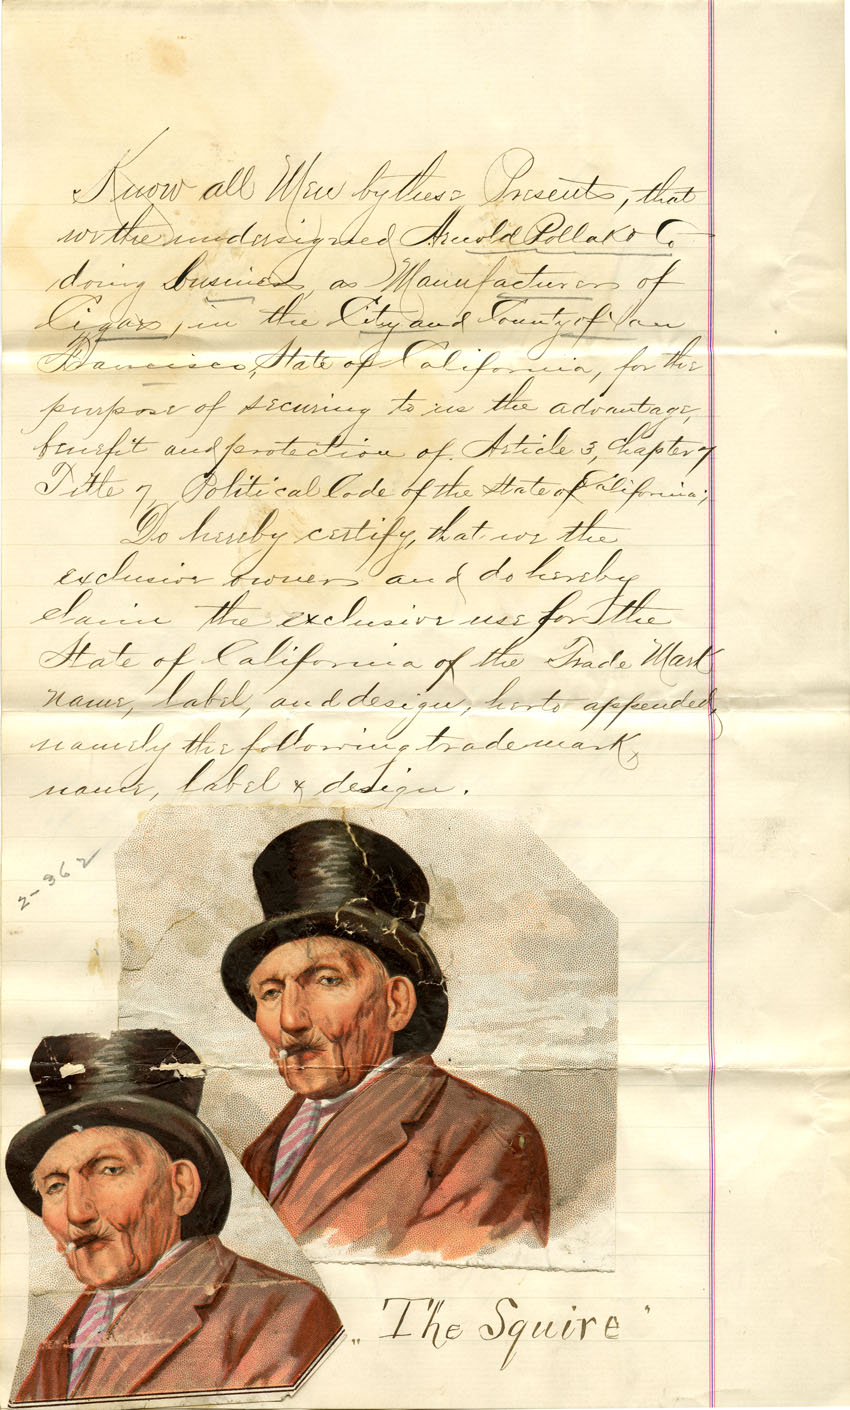 Know all Men by these Presents, that
we the undersigned Arnold Pollak & Co
doing business, as Manufacturers of
Cigars, in the City and County of San
Francisco, State of California, for the
purpose of securing to us the advantage,
benefit and protection of Article 3, Chapter 7
Title 7, Political Code of the State of California;
Do hereby certify, that we the
exclusive owners and do hereby
claim the exclusive use for the
State of California of the Trade Mark
name, label, and design, herto appended,
namely the following trademark,
name, label & design.
2-362
"The Squire"